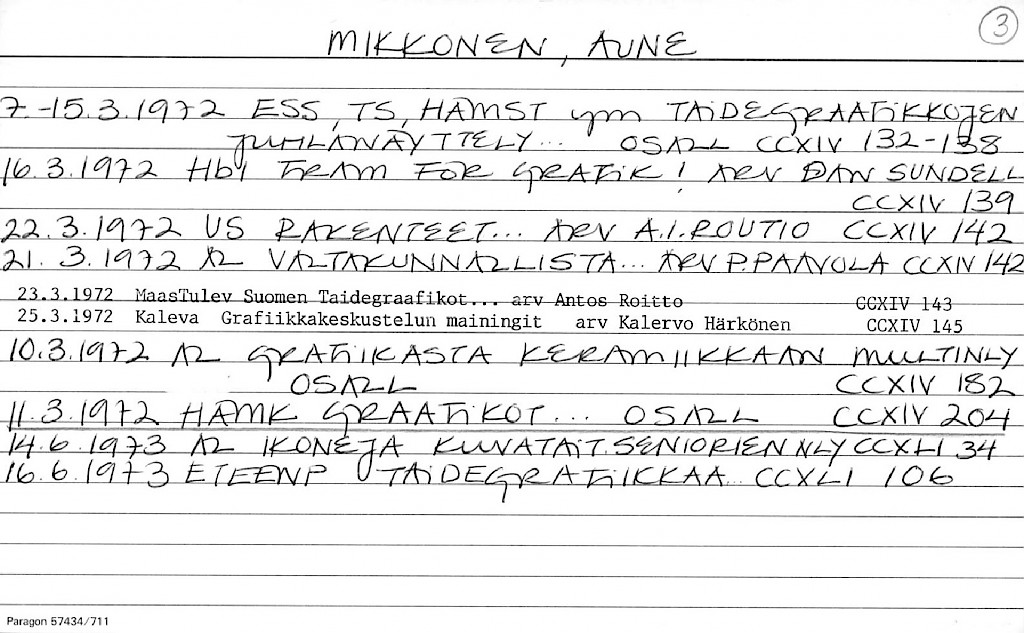 3
MIKKONEN, AUNE
7.-15.3.1972 ESS, TS, HÄMST ym TAIDEGRAAFIKKOJEN
JUHLANÄYTTELY... OSALL CCXIV 132-138
16.3.1972 Hbl FRAM FÖR GRAFIK! ARV DAN SUNDELL
CCXIV 139
22.3.1972 US RAKENTEET... ARV A.I.ROUTIO CCXIV 142
21.3.1972 AL VALTAKUNNALLISTA... ARV P.PAAVOLA CCXIV 142
23.3.1972 MaasTulev Suomen Taidegraafikot... arv Antos Roitto CCXIV 143
25.3.1972 Kaleva Grafiikkakeskustelun mainingit arv Kalervo Härkönen CCXIV 145
10.3.1972 AL GRAFIIKASTA KERAMIIKKAAN MULTINLY
OSALL CCXIV 182
11.3.1972 HÄMK GRAAFIKOT... OSALL CCXIV 204
14.6.1973 AL IKONEJA KUVATAIT.SENIORIEN NLY CCXLI 34
16.6.1973 ETEENP TAIDEGRAFIIKKAA... CCXLI 106
Paragon 57434/711